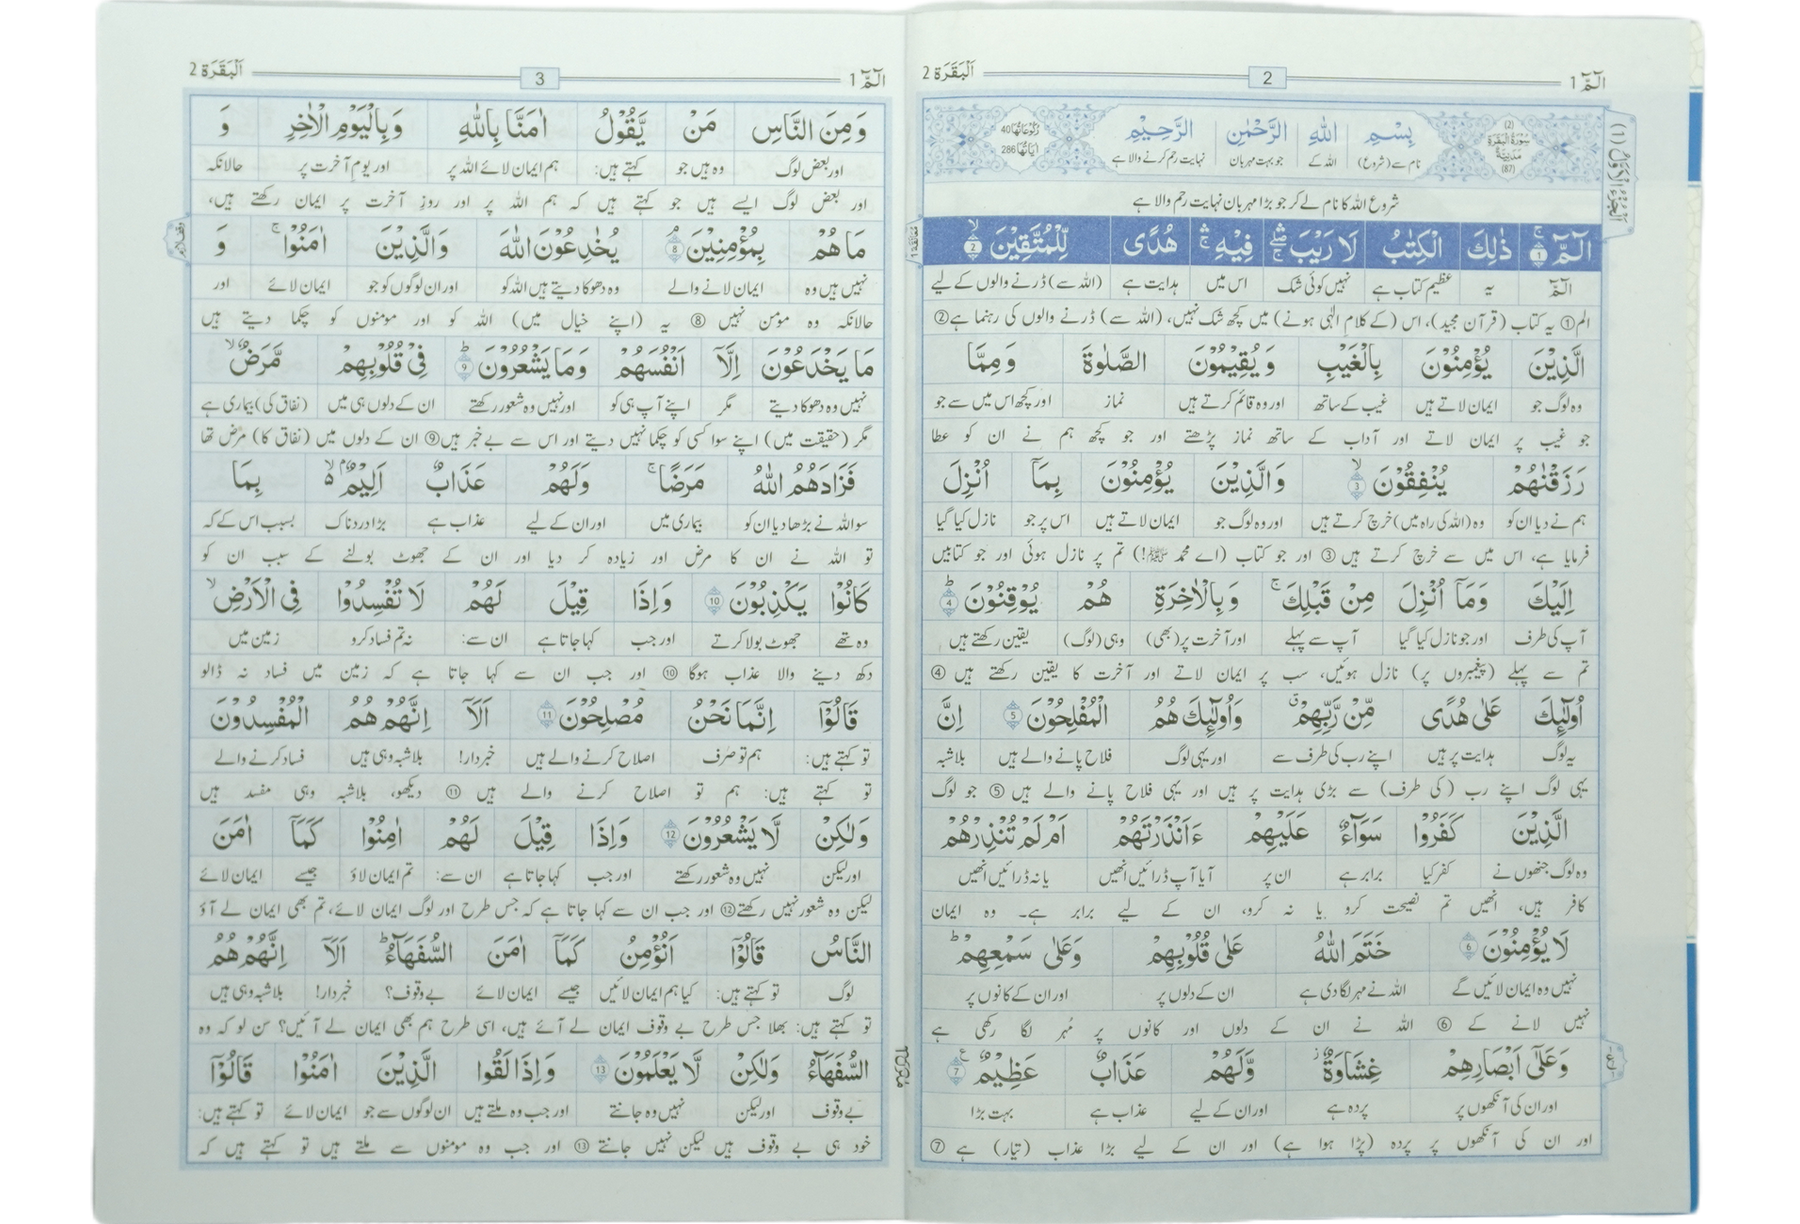 الٓمّٓ 1
2
اَلْبَقَرَة 2
اَلْجُزْءُ الْاَوَّلُ (1)
(2)
سُوْرَةُ الْبَقَرَةِ
مَدَنِيَّةٌ
(87)
بِسْمِ اللّٰهِ الرَّحْمٰنِ الرَّحِيْمِ
نام سے (شروع) اللہ کے جو بہت مہربان نہایت رحم کرنے والا ہے
رُكُوْعَاتُهَا 40
اٰيَاتُهَا 286
شروع اللہ کا نام لے کر جو بڑا مہربان نہایت رحم والا ہے
الٓمّٓ ۚ 1 ذٰلِكَ الْكِتٰبُ لَا رَيْبَ ۛۖ ۚ فِيْهِ ۛۚ هُدًى لِّلْمُتَّقِيْنَ ۙ 2
الٓمّٓ یہ عظیم کتاب ہے نہیں کوئی شک اس میں ہدایت ہے (اللہ سے) ڈرنے والوں کے لیے
الم① یہ کتاب (قرآن مجید)، اس (کے کلامِ الٰہی ہونے) میں کچھ شک نہیں، (اللہ سے) ڈرنے والوں کی رہنما ہے②
الَّذِيْنَ يُؤْمِنُوْنَ بِالْغَيْبِ وَ يُقِيْمُوْنَ الصَّلٰوةَ وَ مِمَّا
وہ لوگ جو ایمان لاتے ہیں غیب کے ساتھ اور وہ قائم کرتے ہیں نماز اور کچھ اس میں سے جو
جو غیب پر ایمان لاتے اور آداب کے ساتھ نماز پڑھتے اور جو کچھ ہم نے ان کو عطا
رَزَقْنٰهُمْ يُنْفِقُوْنَ ۙ 3 وَالَّذِيْنَ يُؤْمِنُوْنَ بِمَآ اُنْزِلَ
ہم نے دیا ان کو وہ (اللہ کی راہ میں) خرچ کرتے ہیں اور وہ لوگ جو ایمان لاتے ہیں اس پر جو نازل کیا گیا
فرمایا ہے، اس میں سے خرچ کرتے ہیں③ اور جو کتاب (اے محمد ﷺ!) تم پر نازل ہوئی اور جو کتابیں
اِلَيْكَ وَمَآ اُنْزِلَ مِنْ قَبْلِكَ ۚ وَبِالْاٰخِرَةِ هُمْ يُوْقِنُوْنَ ۭ 4
آپ کی طرف اور جو نازل کیا گیا آپ سے پہلے اور آخرت پر (بھی) وہی (لوگ) یقین رکھتے ہیں
تم سے پہلے (پیغمبروں پر) نازل ہوئیں، سب پر ایمان لاتے اور آخرت کا یقین رکھتے ہیں④
اُولٰٓئِكَ عَلٰى هُدًى مِّنْ رَّبِّهِمْ ۤ وَاُولٰٓئِكَ هُمُ الْمُفْلِحُوْنَ 5 اِنَّ
یہ لوگ ہدایت پر ہیں اپنے رب کی طرف سے اور یہی لوگ فلاح پانے والے ہیں بلاشبہ
یہی لوگ اپنے رب (کی طرف) سے بڑی ہدایت پر ہیں اور یہی فلاح پانے والے ہیں⑤ جو لوگ
الَّذِيْنَ كَفَرُوْا سَوَآءٌ عَلَيْهِمْ ءَاَنْذَرْتَهُمْ اَمْ لَمْ تُنْذِرْهُمْ
وہ لوگ جنھوں نے کفر کیا برابر ہے ان پر آیا آپ ڈرائیں انھیں یا نہ ڈرائیں انھیں
کافر ہیں، انھیں تم نصیحت کرو یا نہ کرو، ان کے لیے برابر ہے۔ وہ ایمان
لَا يُؤْمِنُوْنَ 6 خَتَمَ اللّٰهُ عَلٰى قُلُوْبِهِمْ وَعَلٰى سَمْعِهِمْ ۭ
نہیں وہ ایمان لائیں گے اللہ نے مہر لگا دی ہے ان کے دلوں پر اور ان کے کانوں پر
نہیں لانے کے⑥ اللہ نے ان کے دلوں اور کانوں پر مُہر لگا رکھی ہے
وَعَلٰٓى اَبْصَارِهِمْ غِشَاوَةٌ ۡ وَّلَهُمْ عَذَابٌ عَظِيْمٌ 7
اور ان کی آنکھوں پر پردہ ہے اور ان کے لیے عذاب ہے بہت بڑا
اور ان کی آنکھوں پر پردہ (پڑا ہوا ہے) اور ان کے لیے بڑا عذاب (تیار) ہے⑦
الٓمّٓ 1
3
اَلْبَقَرَة 2
وَمِنَ النَّاسِ مَنْ يَّقُوْلُ اٰمَنَّا بِاللّٰهِ وَبِالْيَوْمِ الْاٰخِرِ وَ
اور بعض لوگ وہ ہیں جو کہتے ہیں: ہم ایمان لائے اللہ پر اور یوم آخرت پر حالانکہ
اور بعض لوگ ایسے ہیں جو کہتے ہیں کہ ہم اللہ پر اور روزِ آخرت پر ایمان رکھتے ہیں،
مَا هُمْ بِمُؤْمِنِيْنَ ۘ 8 يُخٰدِعُوْنَ اللّٰهَ وَالَّذِيْنَ اٰمَنُوْا ۚ وَ
نہیں ہیں وہ ایمان لانے والے وہ دھوکا دیتے ہیں اللہ کو اور ان لوگوں کو جو ایمان لائے اور
حالانکہ وہ مومن نہیں⑧ یہ (اپنے خیال میں) اللہ کو اور مومنوں کو چکما دیتے ہیں
مَا يَخْدَعُوْنَ اِلَّآ اَنْفُسَهُمْ وَمَا يَشْعُرُوْنَ ۭ 9 فِيْ قُلُوْبِهِمْ مَّرَضٌ ۙ
نہیں وہ دھوکا دیتے مگر اپنے آپ ہی کو اور نہیں وہ شعور رکھتے ان کے دلوں ہی میں (نفاق کی) بیماری ہے
مگر (حقیقت میں) اپنے سوا کسی کو چکما نہیں دیتے اور اس سے بے خبر ہیں⑨ ان کے دلوں میں (نفاق کا) مرض تھا
فَزَادَهُمُ اللّٰهُ مَرَضًا ۚ وَلَهُمْ عَذَابٌ اَلِيْمٌ ۢ ۙ بِمَا
سو اللہ نے بڑھا دیا ان کو بیماری میں اور ان کے لیے عذاب ہے بڑا دردناک بسبب اس کے کہ
تو اللہ نے ان کا مرض اور زیادہ کر دیا اور ان کے جھوٹ بولنے کے سبب ان کو
كَانُوْا يَكْذِبُوْنَ 10 وَاِذَا قِيْلَ لَهُمْ لَا تُفْسِدُوْا فِي الْاَرْضِ ۙ
وہ تھے جھوٹ بولا کرتے اور جب کہا جاتا ہے ان سے: نہ تم فساد کرو زمین میں
دکھ دینے والا عذاب ہوگا⑩ اور جب ان سے کہا جاتا ہے کہ زمین میں فساد نہ ڈالو
قَالُوْٓا اِنَّمَا نَحْنُ مُصْلِحُوْنَ 11 اَلَآ اِنَّهُمْ هُمُ الْمُفْسِدُوْنَ
تو کہتے ہیں: ہم تو صرف اصلاح کرنے والے ہیں خبردار! بلاشبہ وہی ہیں فساد کرنے والے
تو کہتے ہیں: ہم تو اصلاح کرنے والے ہیں⑪ دیکھو، بلاشبہ وہی مفسد ہیں
وَلٰكِنْ لَّا يَشْعُرُوْنَ 12 وَاِذَا قِيْلَ لَهُمْ اٰمِنُوْا كَمَآ اٰمَنَ
اور لیکن نہیں وہ شعور رکھتے اور جب کہا جاتا ہے ان سے: تم ایمان لاؤ جیسے ایمان لائے
لیکن وہ شعور نہیں رکھتے⑫ اور جب ان سے کہا جاتا ہے کہ جس طرح اور لوگ ایمان لائے، تم بھی ایمان لے آؤ
النَّاسُ قَالُوْٓا اَنُؤْمِنُ كَمَآ اٰمَنَ السُّفَهَآءُ ۭ اَلَآ اِنَّهُمْ هُمُ
لوگ تو کہتے ہیں: کیا ہم ایمان لائیں جیسے ایمان لائے بے وقوف؟ خبردار! بلاشبہ وہی ہیں
تو کہتے ہیں: بھلا جس طرح بے وقوف ایمان لے آئے ہیں، اسی طرح ہم بھی ایمان لے آئیں؟ سن لو کہ وہ
السُّفَهَآءُ وَلٰكِنْ لَّا يَعْلَمُوْنَ 13 وَاِذَا لَقُوا الَّذِيْنَ اٰمَنُوْا قَالُوْٓا
بے وقوف اور لیکن نہیں وہ جانتے اور جب وہ ملتے ہیں ان لوگوں سے جو ایمان لائے تو کہتے ہیں:
خود ہی بے وقوف ہیں لیکن نہیں جانتے⑬ اور جب وہ مومنوں سے ملتے ہیں تو کہتے ہیں کہ